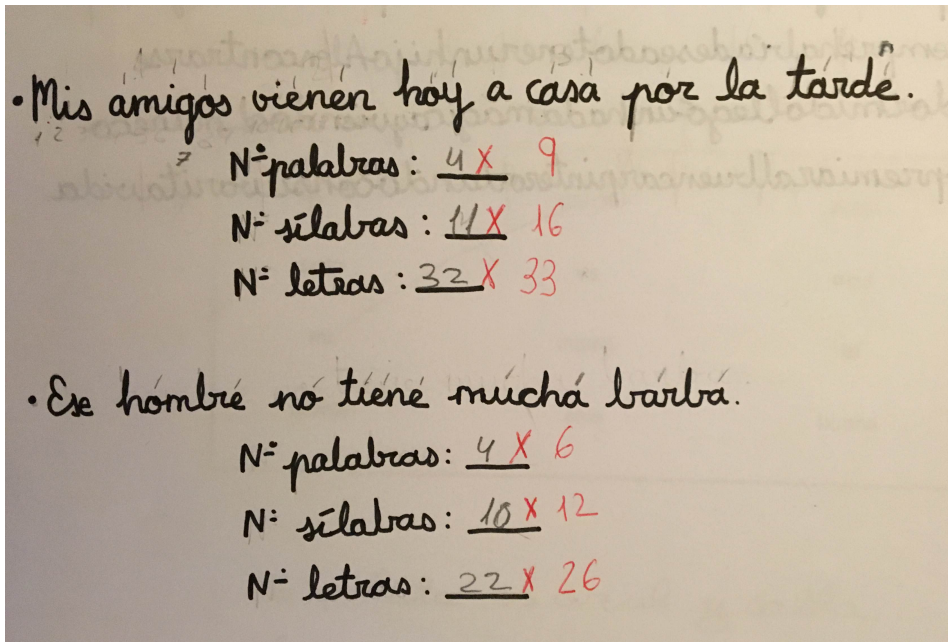 · Mis amigos vienen hoy a casa por la tarde.
Nº palabras: 4 X 9
Nº sílabas: 11 X 16
Nº letras: 32 X 33
· Ese hombre no tiene mucha barba.
Nº palabras: 4 X 6
Nº sílabas: 10 X 12
Nº letras: 22 X 26